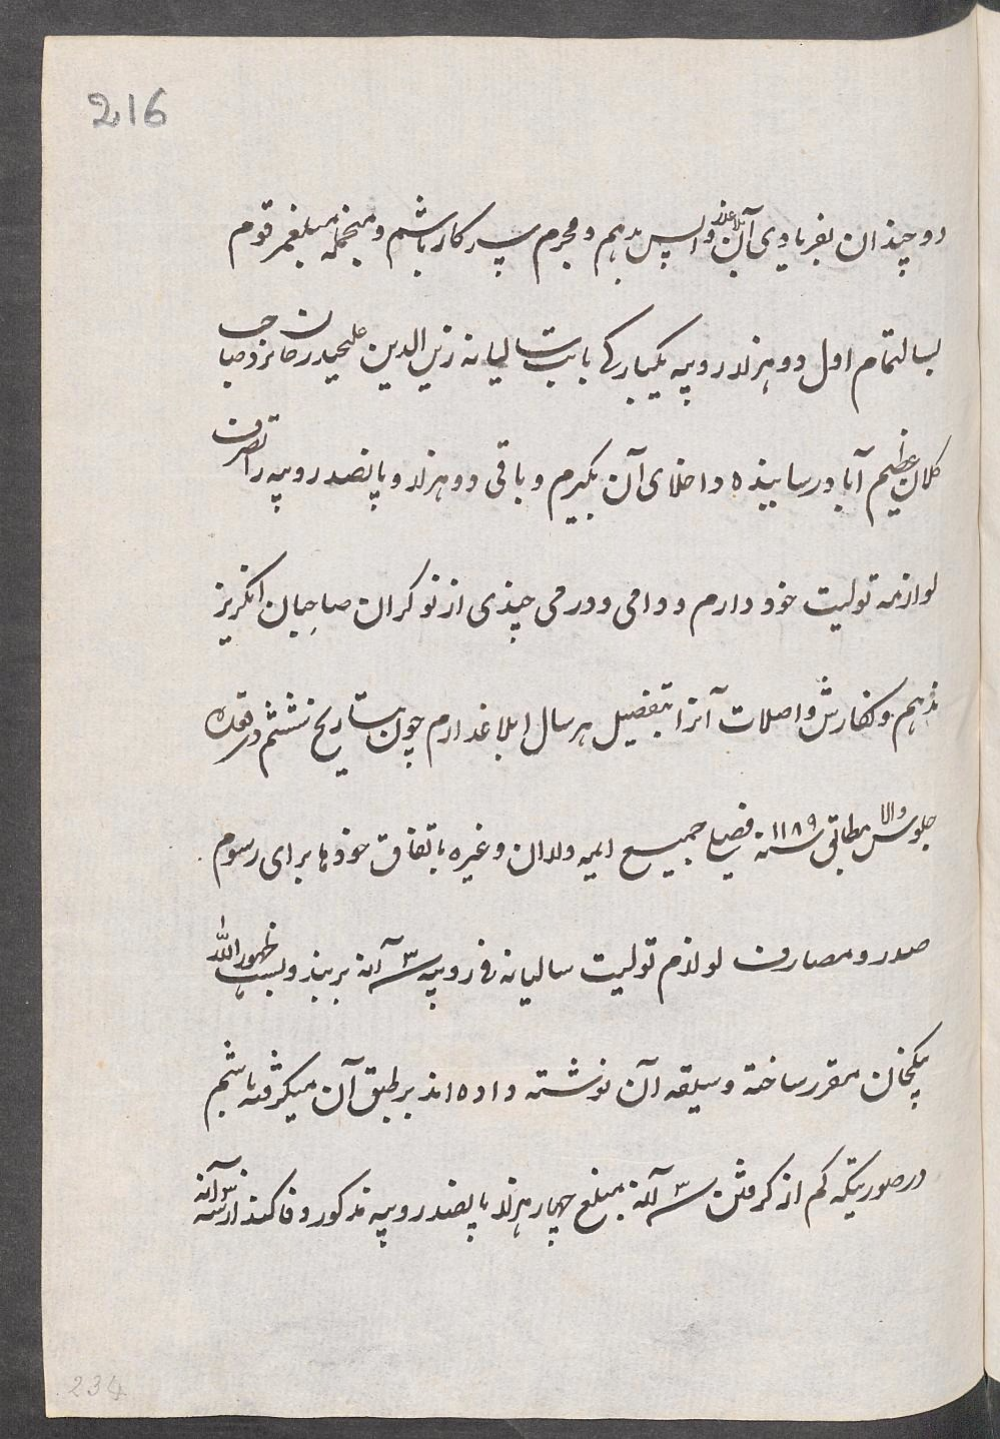 216
دو چندان بفریادی آن بلا عذر واپس بدهم و مجرم سرکار باشم و منجمله مبلغ مرقوم
بسالتمام اول دو هزار روپیه یکبارکے بابت سالیانه زین الدین علیحیدرخان نزد صاحبان
کلان عظیم آباد رسانیده داخلای آن بگیرم و باقی دو هزار و پانصد روپیه را تصرف
لوازمه تولیت خود دارم و دوامی و درمی چندی از نوکران صاحبان انگریز
ندهم و نگارش واصلات آنرا بتفصیل هر سال ابلاغ دارم چون بتاریخ ششم ذیقعده
جلوس والا مطابق سنه ۱۱۸۹ فصلی جمیع ایمه داران و غیره باتفاق خودها برای رسوم
صدر و مصارف لوازم تولیت سالیانه فی روپیه ۳ آنه بر بند و بست ظهور الله
بیکخان مقرر ساخته وسیقه آن نوشته داده اند بر طبق آن میگرفته باشم
در صورتیکه کم از گرفتن ۳ آنه مبلغ چهار هزار پانصد روپیه مذکور وفا کند از سه آنه
234